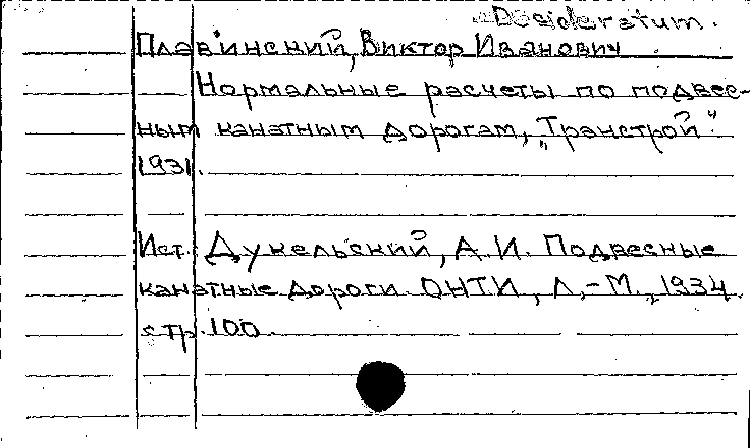 Desideratum.
Плавинский, Виктор Иванович
Нормальные расчеты по подвес-
ным канатным дорогам, „Транстрой"
1931.
Ист. Дукельский, А. И. Подвесные
канатные дороги. ОНТИ, Л,-М., 1934.
стр. 100.